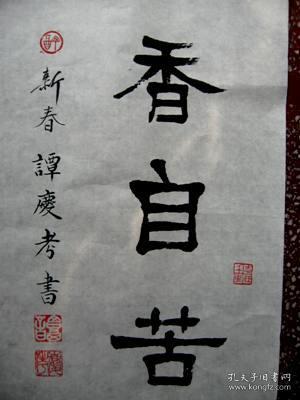 香自苦
新春譚慶考書
孔夫子旧书网
www.kongfz.com